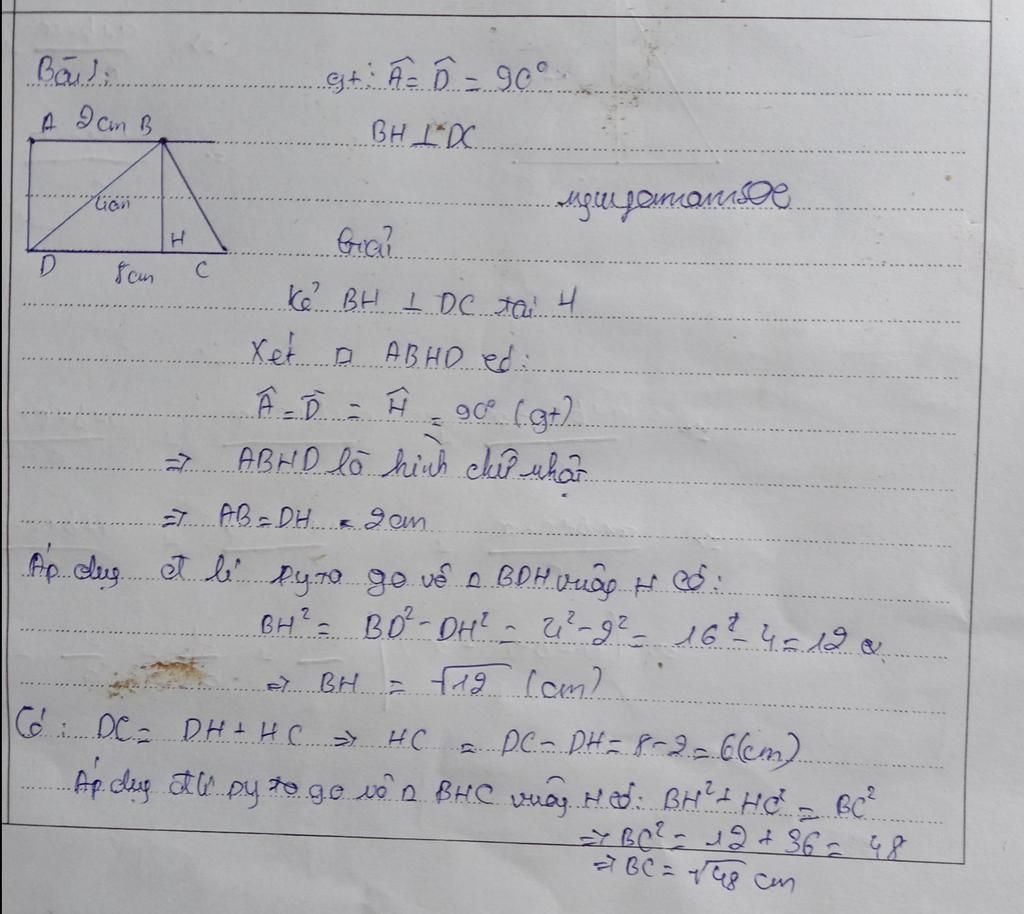 Bài 1: gt: Â = D̂ = 90°
A 2cm B
BH ⊥ DC
4cm
H
Giải
D 8cm C
Kẻ BH ⊥ DC tại H
Xét □ ABHD có:
Â = D̂ = Ĥ = 90° (gt)
=> ABHD là hình chữ nhật
=> AB = DH = 2cm
Áp dụng đ lí pytago vào △ BDH vuông H có:
BH² = BD² - DH² = 4² - 2² = 16² - 4 = 12
=> BH = √12 (cm)
Có: DC = DH + HC => HC = DC - DH = 8 - 2 = 6(cm)
Áp dụng đlí pytago vào △ BHC vuông H có: BH² + HC² = BC²
=> BC² = 12 + 36 = 48
=> BC = √48 cm